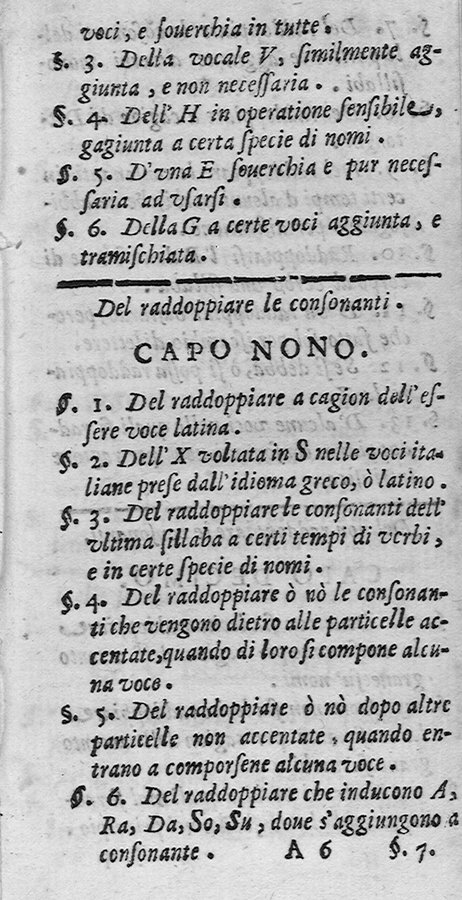 voci, e ſouerchia in tutte.
§. 3. Della vocale V, ſimilmente ag-
giunta, e non neceſſaria.
§. 4. Dell' H in operatione ſenſibile,
gagiunta a certa ſpecie di nomi.
§. 5. D'vna E ſouerchia e pur neceſ-
ſaria ad vſarſi.
§. 6. Della G a certe voci aggiunta, e
tramiſchiata.
Del raddoppiare le conſonanti.
CAPO NONO.
§. 1. Del raddoppiare a cagion dell'eſ-
ſere voce latina.
§. 2. Dell'X voltata in S nelle voci ita-
liane preſe dall'idioma greco, ò latino.
§. 3. Del raddoppiare le conſonanti dell'
vltima ſillaba a certi tempi di verbi,
e in certe ſpecie di nomi.
§. 4. Del raddoppiare ò nò le conſonan-
ti che vengono dietro alle particelle ac-
centate, quando di loro ſi compone alcu-
na voce.
§. 5. Del raddoppiare ò nò dopo altre
particelle non accentate, quando en-
trano a comporſene alcuna voce.
§. 6. Del raddoppiare che inducono A,
Ra, Da, So, Su, doue s'aggiungono a
conſonante. A 6 §. 7.